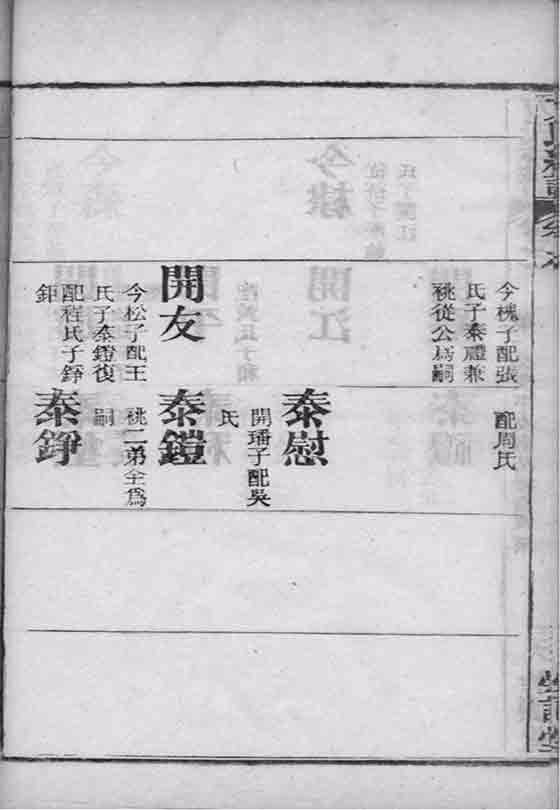 今槐子配張
氏子泰禮兼
祧從公爲嗣
配周氏
泰慰
開璠子配吳
氏
開友
今松子配王
氏子泰鎧復
配程氏子錚
鉅
泰鎧
祧二弟全爲
嗣
泰錚